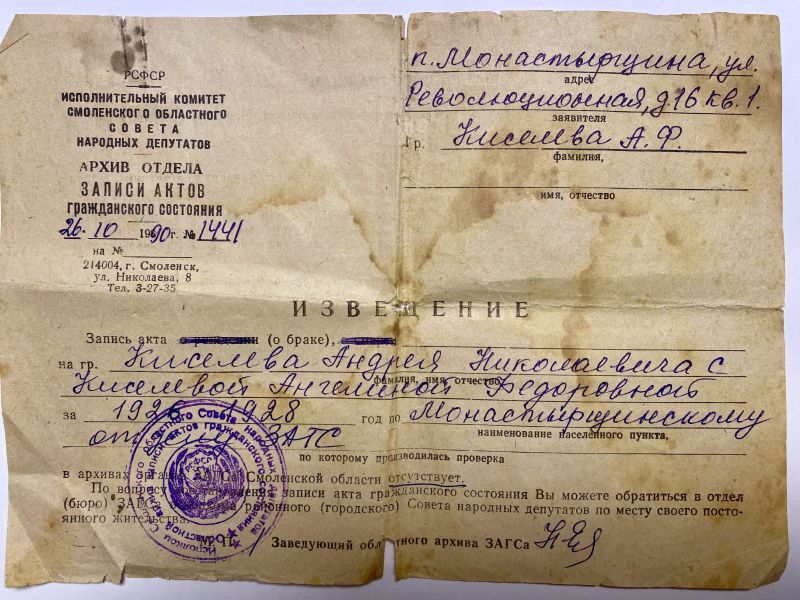 РСФСР
ИСПОЛНИТЕЛЬНЫЙ КОМИТЕТ
СМОЛЕНСКОГО ОБЛАСТНОГО
СОВЕТА
НАРОДНЫХ ДЕПУТАТОВ
АРХИВ ОТДЕЛА
ЗАПИСИ АКТОВ
ГРАЖДАНСКОГО СОСТОЯНИЯ
26. 10 1990 г. № 1441
на №
214004, г. Смоленск,
ул. Николаева, 8
Тел. 3-27-35
п. Монастырщина, ул.
адрес
Революционная, д. 16 кв. 1.
заявителя
Гр. Киселева А. Ф.
фамилия,
имя, отчество
ИЗВЕЩЕНИЕ
Запись акта о рождении (о браке),
на гр. Киселева Андрея Николаевича с
фамилия, имя, отчество
Киселевой Ангелиной Федоровной
за 1926 1928 год по Монастырщинскому
наименование населённого пункта,
ЗАГС
по которому производилась проверка
в архивах ЗАГСа Смоленской области отсутствует.
По вопросу записи акта гражданского состояния Вы можете обратиться в отдел
(бюро) ЗАГС районного (городского) Совета народных депутатов по месту своего посто-
янного жительства.
М. П.
Заведующий областного архива ЗАГСа